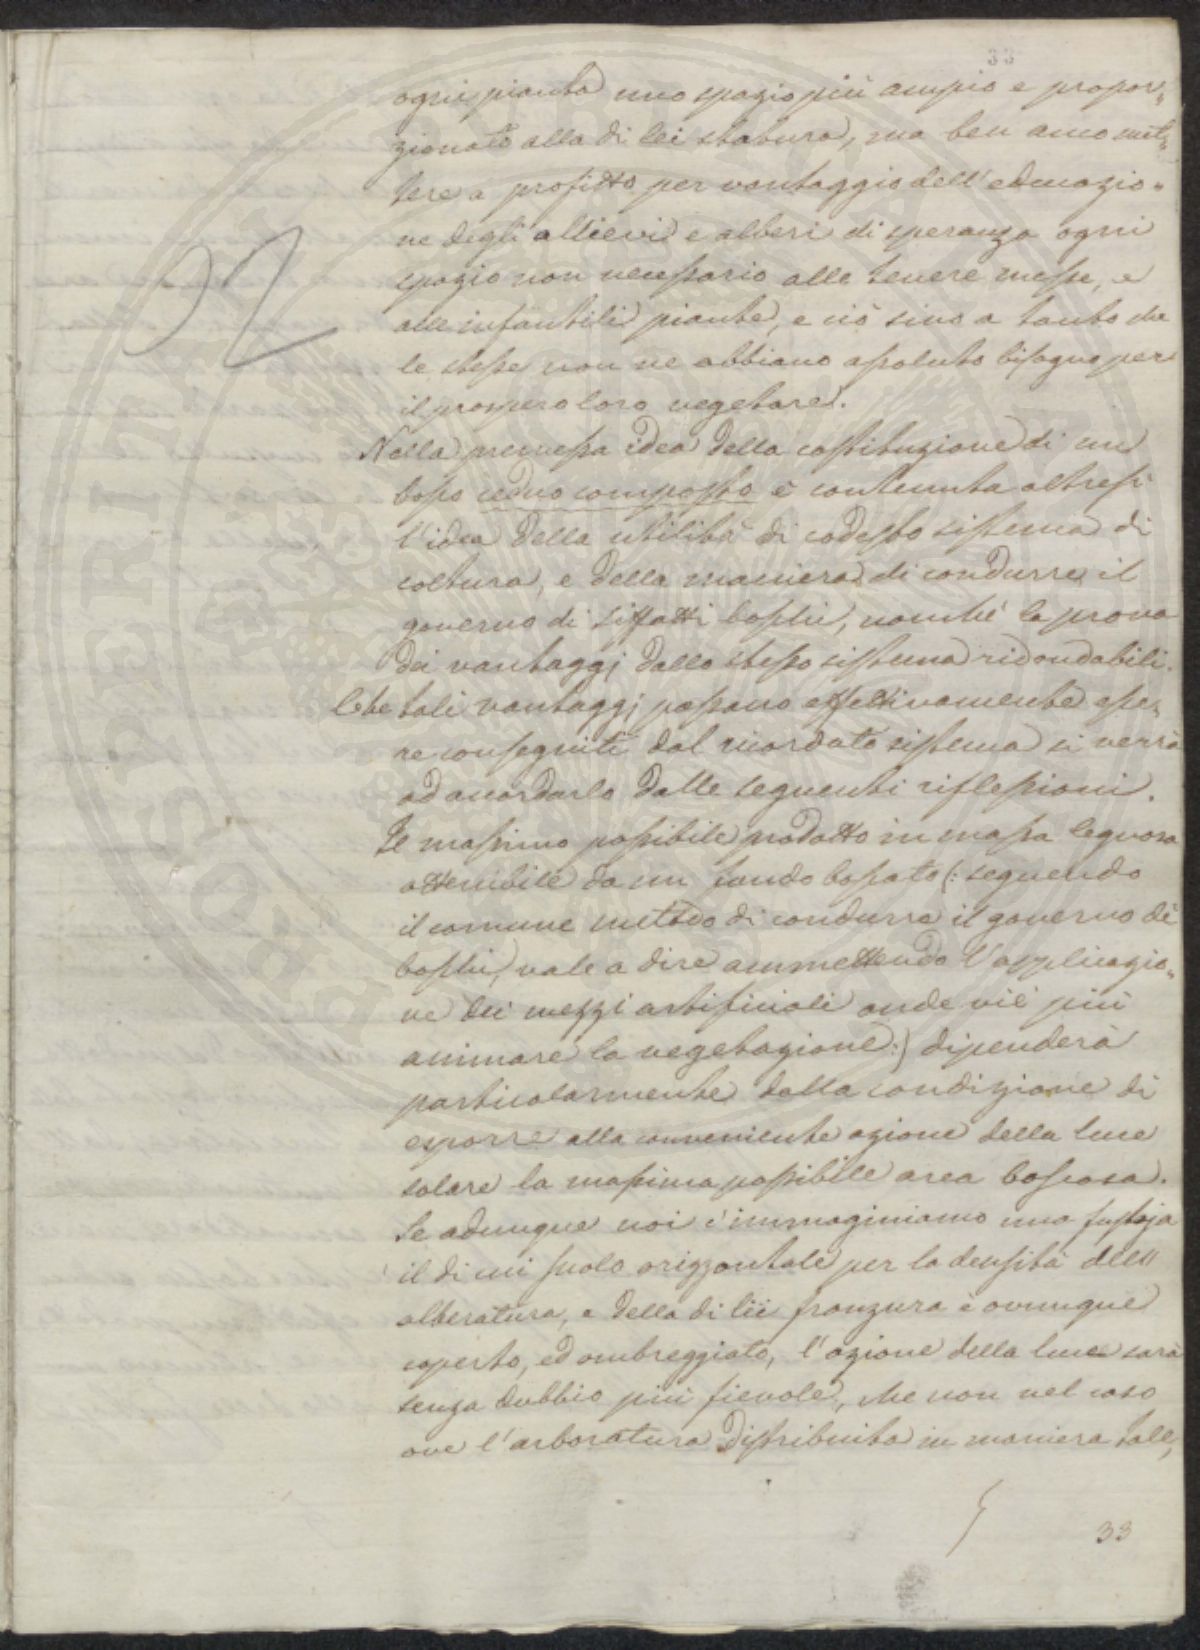 33
ogni pianta uno spazio più ampio e propor„
zionato alla di lei statura, ma ben anco met„
tere a profitto per vantaggio dell'educazio„
ne degli allievi e alberi di speranza ogni
spazio non necessario alle tenere messe, e
alle infantili piante, e ciò sino a tanto che
le stesse non ne abbiano assoluto bisogno per
il prospero loro vegetare.
Nella premessa idea della costituzione di un
bosco ceduo composto è contenuta altresì
l'idea della utilità di codesto sistema di
coltura, e della maniera di condurre il
governo di siffatti boschi, nonché la prova
dei vantaggj dallo stesso sistema ridondabili.
Che tali vantaggj possano effettivamente esse„
re conseguiti dal ricordato sistema si verrà
ad accordarlo dalle seguenti riflessioni.
Il massimo possibile prodotto in massa legnosa
ottenibile da un fondo boscato (: seguendo
il comune metodo di condurre il governo dè
boschi, vale a dire ammettendo l'applicazio„
ne dei mezzi artificiali onde viè più
animare la vegetazione :) dipenderà
particolarmente dalla condizione di
esporre alla conveniente azione della luce
solare la massima possibile area boscosa.
Se adunque noi c'immaginiamo una fustaja
il di cui suolo orizzontale per la densità dell'
alberatura, e della di lei fronzura è ovunque
coperto, ed ombreggiato, l'azione della luce sarà
senza dubbio più fievole, che non nel caso
ove l'arboratura distribuita in maniera tale,
33